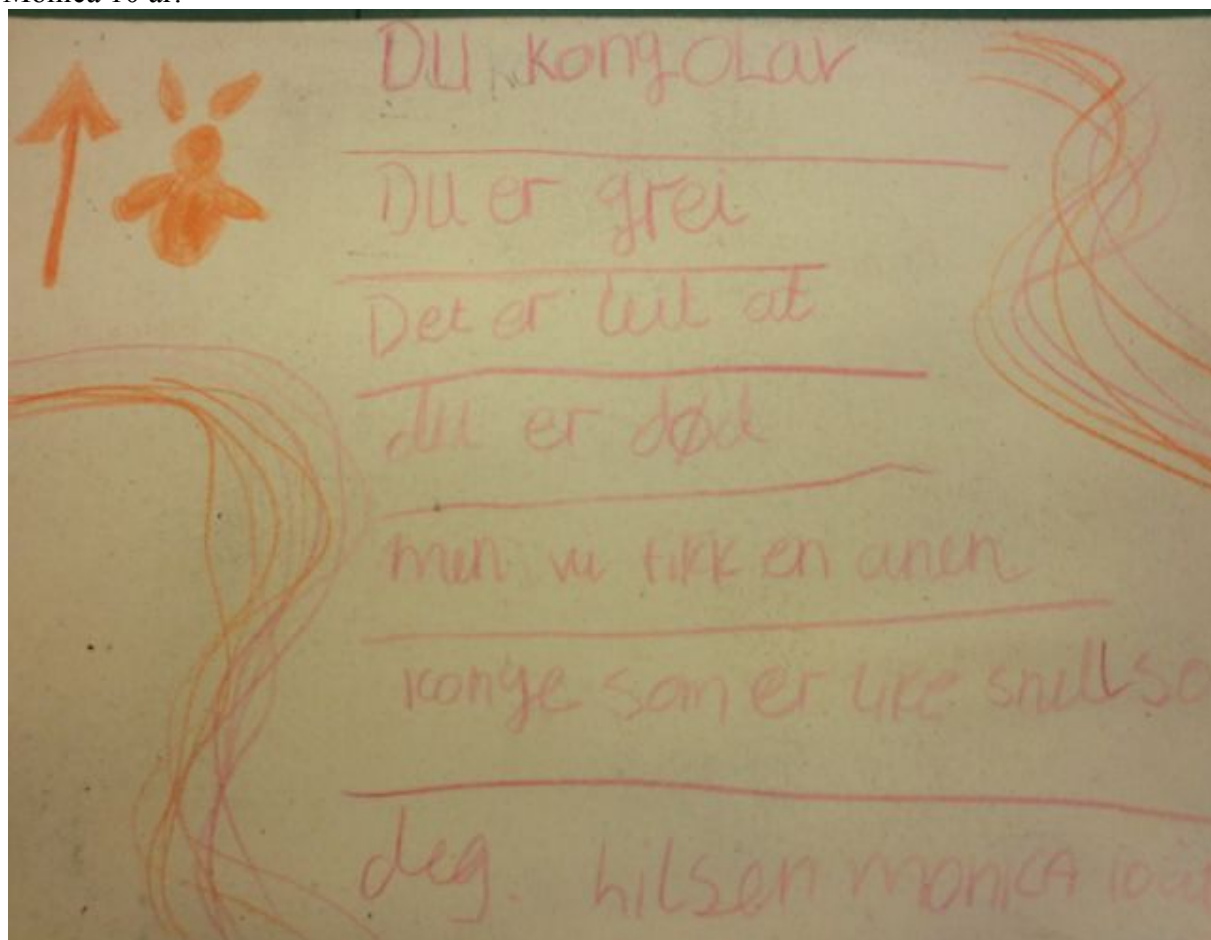 Monica 10 år.
DU Kong OLav
DU er grei
Det er leit at
du er død
men vi fikk en anen
konge som er like snill so
deg. hilsen monica 10år